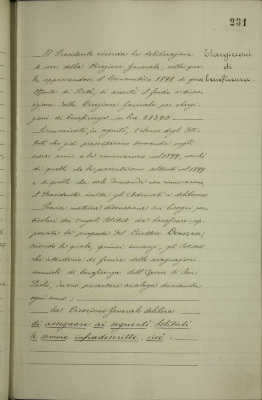 231
Il Presidente ricorda la deliberazione Elargizioni
4 corr. della Direzione Generale colla qua- di
le, approvandosi il Consuntivo 1898 di quel beneficenza
Monte di Pietà, si accertò il fondo a dispo-
sizione della Direzione Generale per elargi-
zioni di beneficenza in lire
Comunicato, in oggetto, l'elenco degli Isti-
tuti che già presentarono domanda negli
scorsi anni e la rinnovarono nel 1899, nonchè
di quelli che la presentarono soltanto nel 1899
e di quelli che tale domanda non rinnovarono
il Presidente invita gli Adunati a deliberare.
Previa matura discussione sui bisogni par-
ticolari dei singoli Istituti da beneficare, ap-
provata la proposta del Direttore
secondo la quale, quinci innanzi, gli Istituti
che intendono di fruire delle assegnazioni
annuali di beneficenza dell'Opera di San
Paolo, devono presentare analoga domanda
ogni anno;
la Direzione Generale delibera
di assegnare ai seguenti Istituti
le somme infradescritte, cioè: